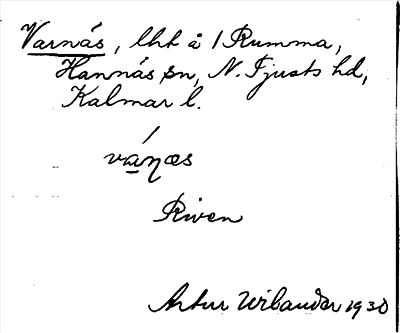 Varnás, lht å 1 Rumma,
Hannás sn, N. Tjusts hd,
Kalmar l.
váŋæs
Riven
Artur Wilander 1930